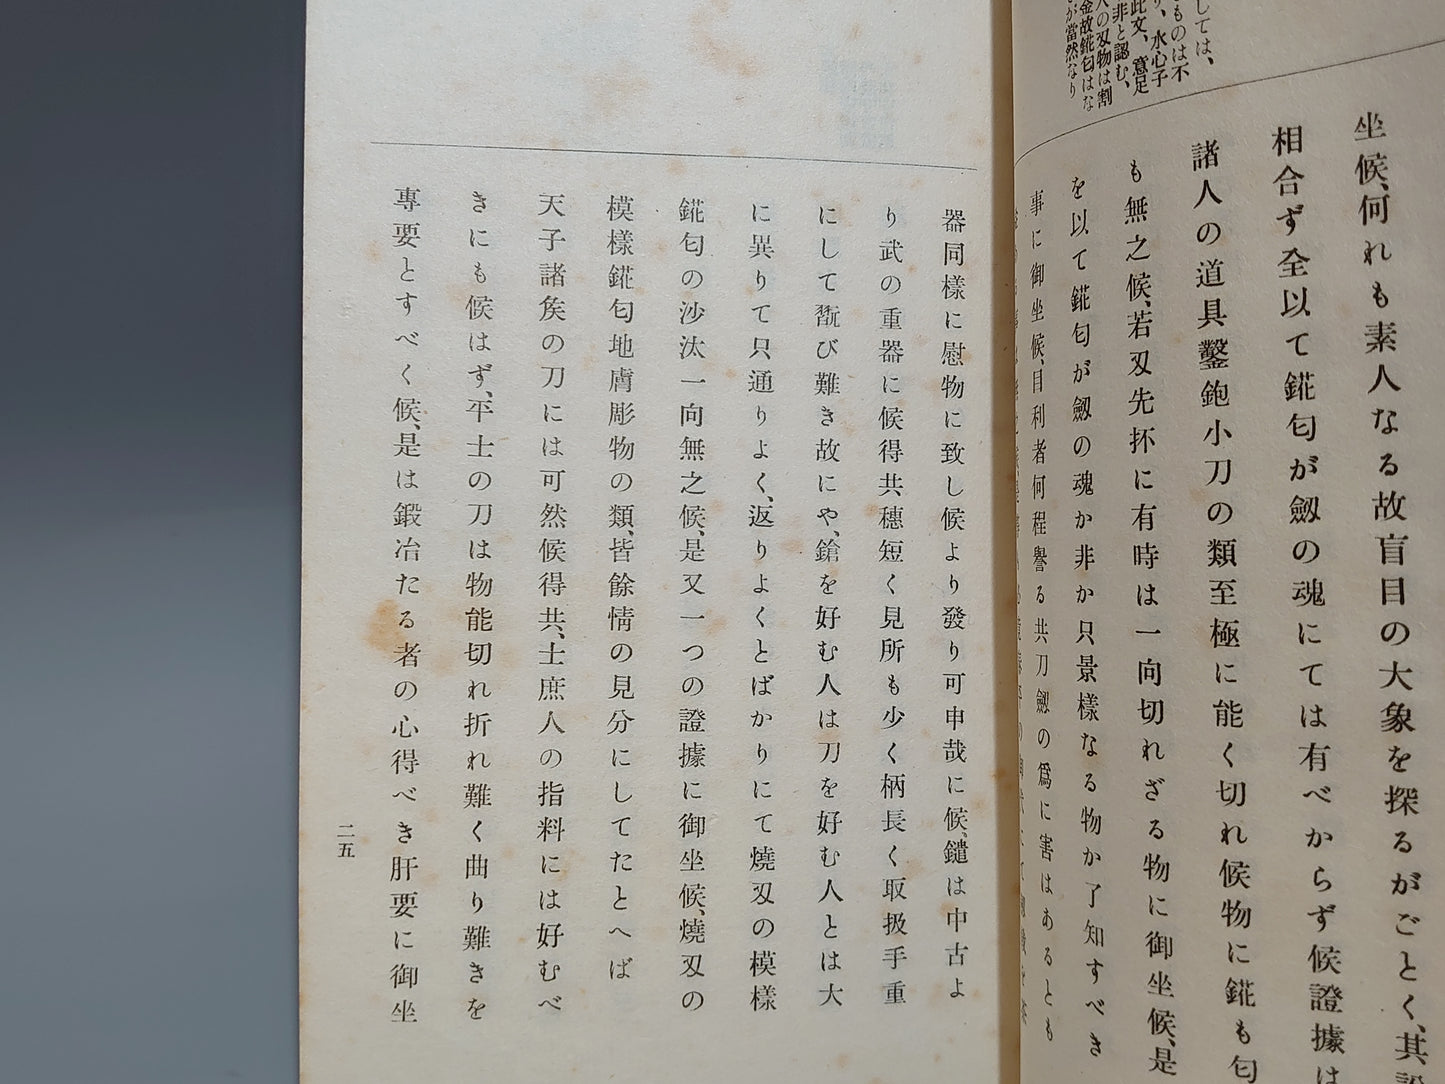 しては、
ものは不
り、水心子
此文、意足
非と認む、
人の刄物は割
金故錵匂はな
が當然なり
坐候、何れも素人なる故盲目の大象を探るがごとく、其
相合ず全以て錵匂が劔の魂にては有べからず候證據は
諸人の道具鑿鉋小刀の類至極に能く切れ候物に錵も匂
も無之候、若刄先抔に有時は一向切れざる物に御坐候、是
を以て錵匂が劔の魂か非か只景樣なる物か了知すべき
事に御坐候、目利者何程譽る共刀劔の爲に害はあるとも
器同樣に慰物に致し候より發り可申哉に候、鑓は中古よ
り武の重器に候得共穗短く見所も少く柄長く取扱手重
にして翫び難き故にや、鎗を好む人は刀を好む人とは大
に異りて只通りよく、返りよくとばかりにて燒刄の模樣
錵匂の沙汰一向無之候、是又一つの證據に御坐候、燒刄の
模樣錵匂地膚彫物の類、皆餘情の見分にしてたとへば
天子諸矦の刀には可然候得共、士庶人の指料には好むべ
きにも候はず、平士の刀は物能切れ折れ難く曲り難きを
專要とすべく候、是は鍛冶たる者の心得べき肝要に御坐
二五